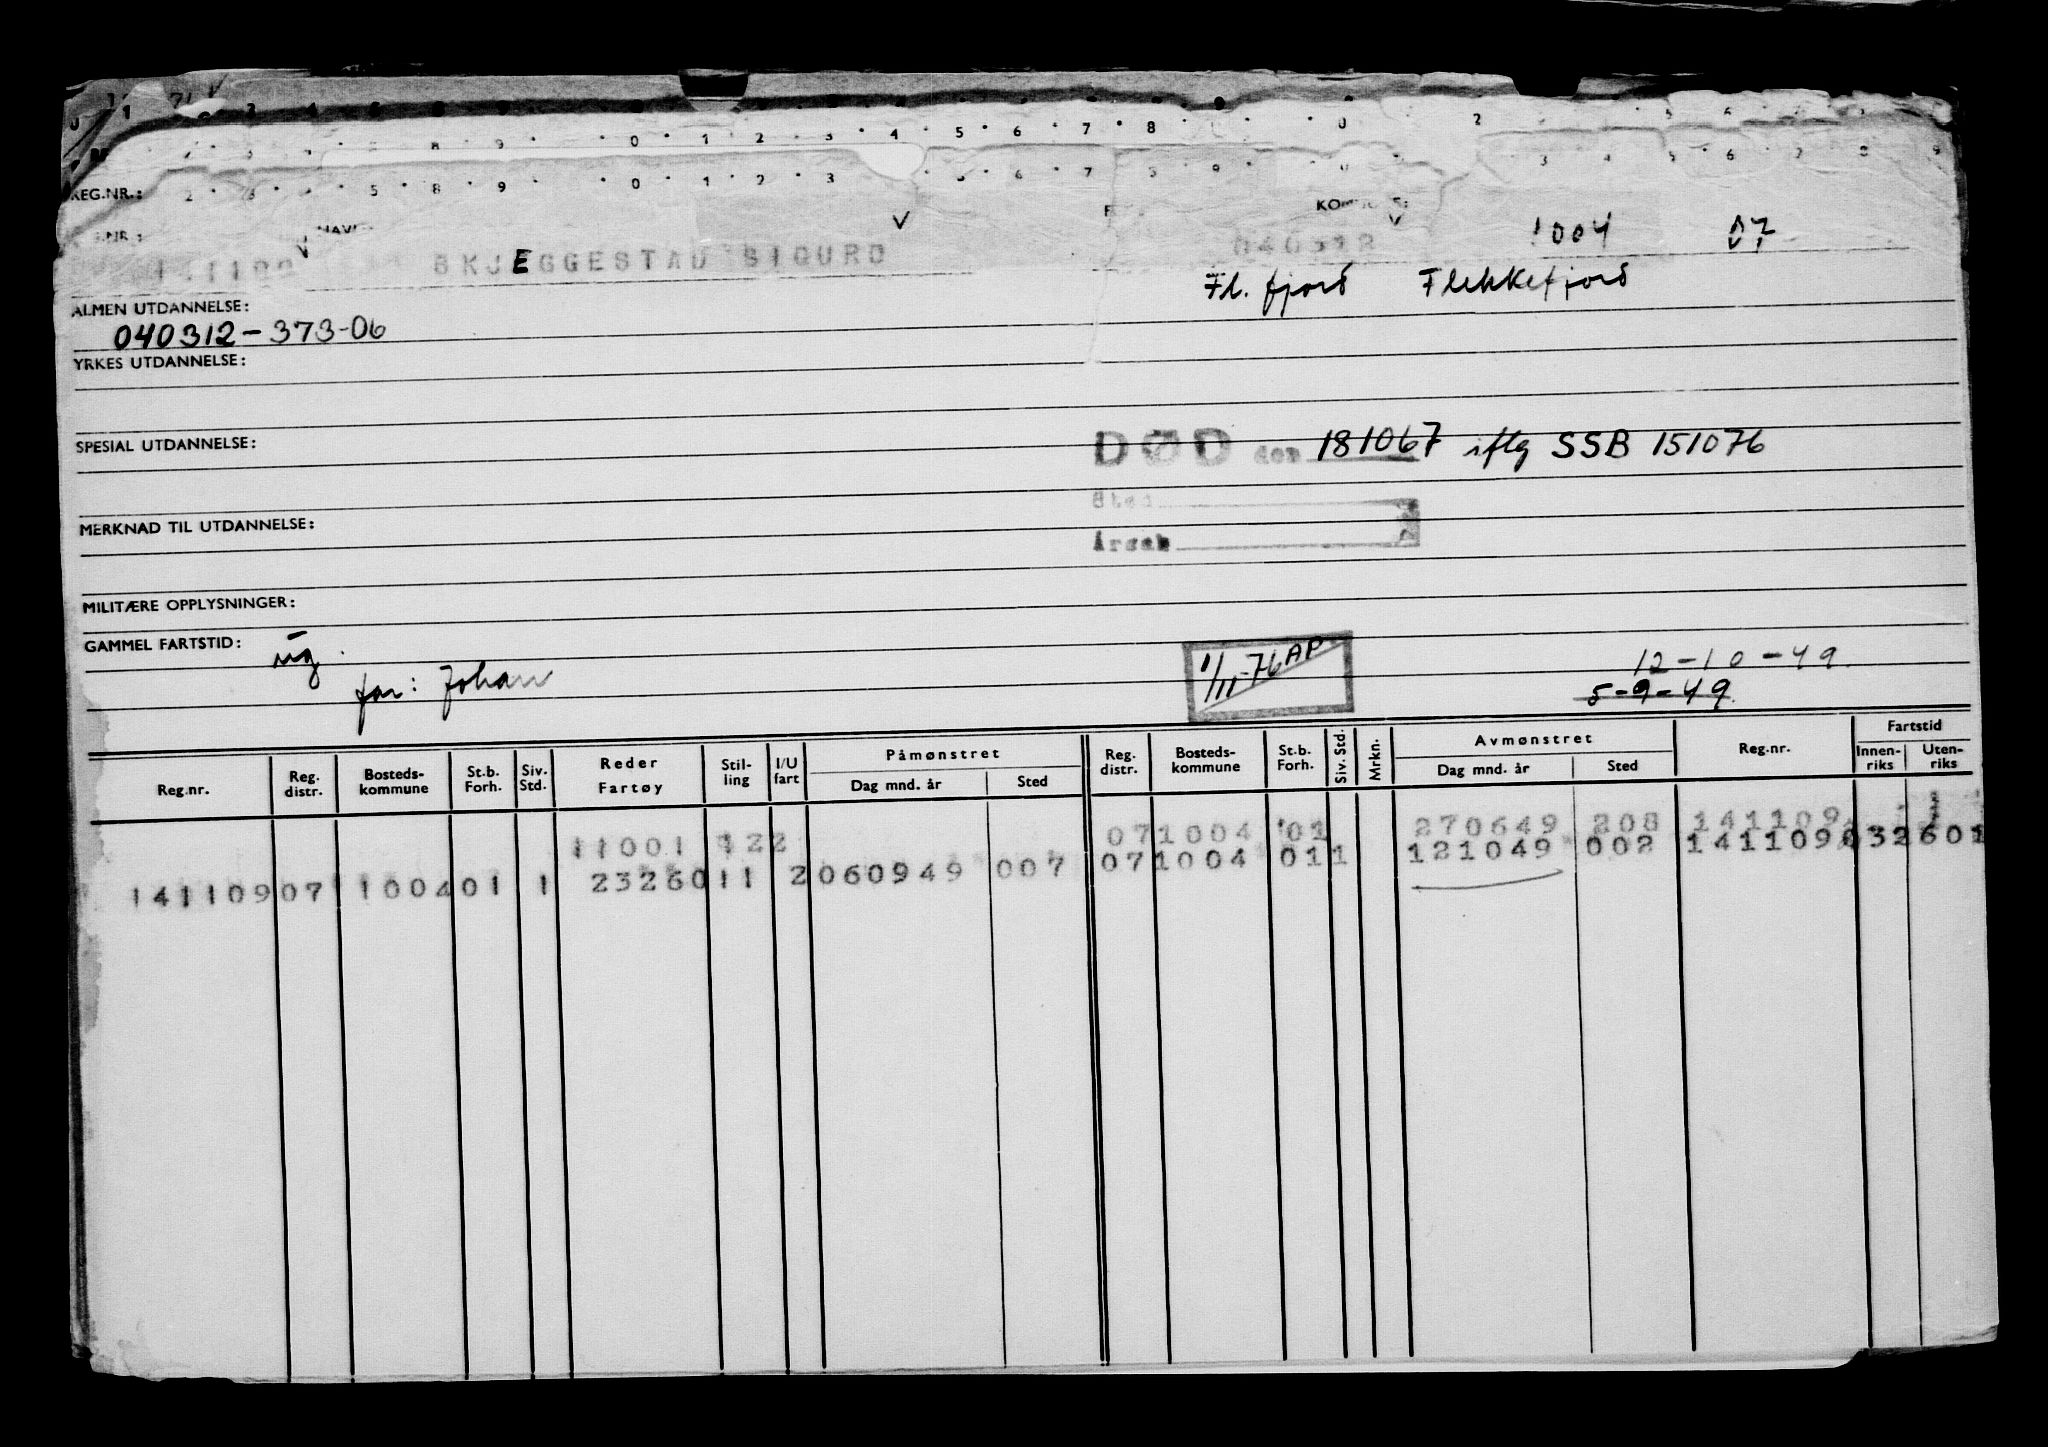 REG.NR.:
SKJEGGESTAD SIGURD 040312 1004 07
Fl. fjord Flekkefjord
ALMEN UTDANNELSE:
040312-373-06
YRKES UTDANNELSE:
SPESIAL UTDANNELSE:
DØD den 181067 iflg SSB 151076
Sted
MERKNAD TIL UTDANNELSE:
Årsak
MILITÆRE OPPLYSNINGER:
GAMMEL FARTSTID:
far: Johan
1/11-76 AP
12-10-49
5-9-49
Reg.nr. Reg. distr. Bosteds-kommune St.b. Forh. Siv. Std. Reder Fartøy Stil-ling I/U fart Påmønstret Dag mnd. år Sted Reg. distr. Bosteds-kommune St.b. Forh. Siv. Std. Mrkn. Avmønstret Dag mnd. år Sted Reg.nr. Fartstid Innen-riks Uten-riks
11001 122 071004 01 270649 208 141109
14110907 100401 1 2326011 2060949 007 071004 011 121049 002 141109032601